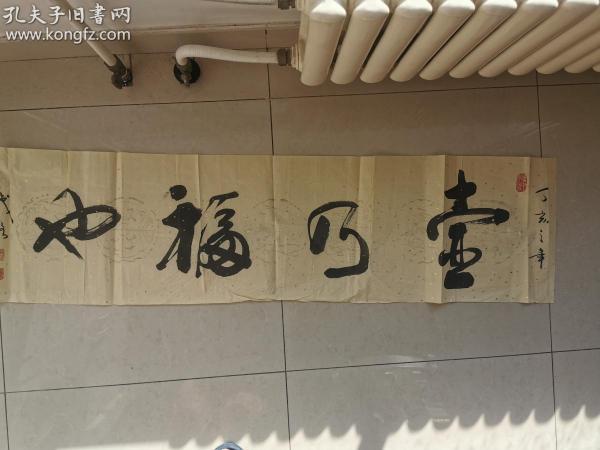 孔夫子旧书网
www.kongfz.com
丁亥之年
壺乃福也